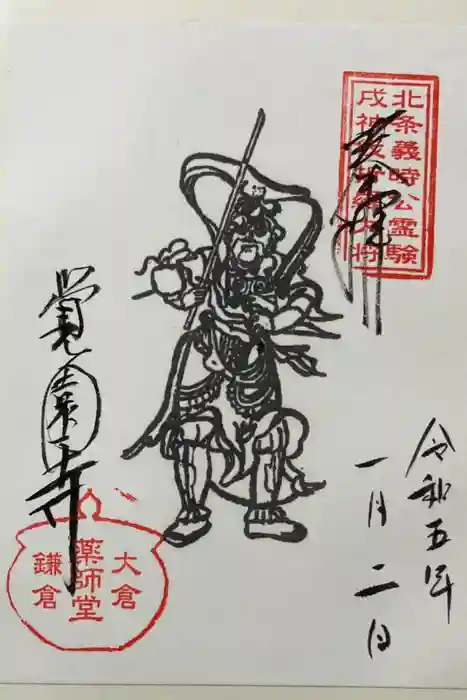 北条義時公霊験
戌神伐折羅大将
奉拝
令和五年
一月二日
覺園寺
大倉
薬師堂
鎌倉